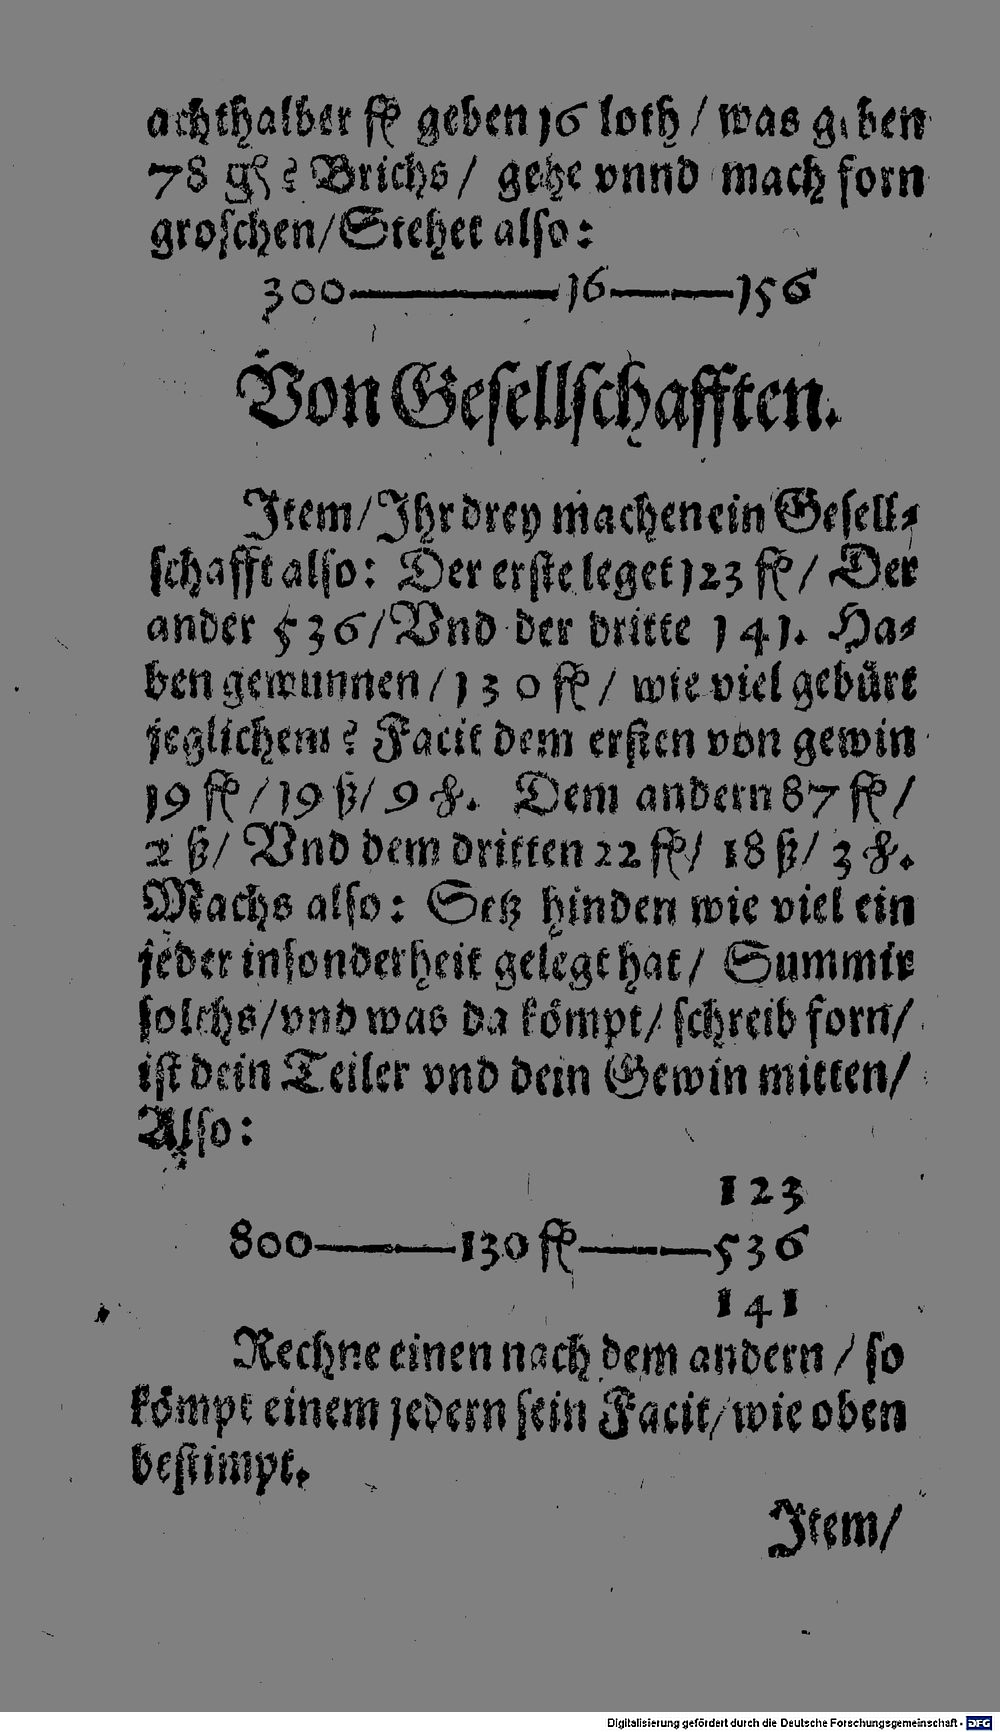 achthalber fl geben 16 loth / was geben
78 gʃ? Brichs / gehe vnnd mach forn
groschen / Stehet also:
300 ——— 16 ——— 156
Von Gesellschafften.
Item / Ihr drey machen ein Gesell⸗
schafft also: Der erste leget 123 fl / Der
ander 536 / Vnd der dritte 141. Ha⸗
ben gewunnen / 130 fl / wie viel gebürt
jeglichem? Facit dem ersten von gewin
19 fl / 19 ß / 9 ₰. Dem andern 87 fl /
2 ß / Vnd dem dritten 22 fl / 18 ß / 3 ₰.
Machs also: Setz hinden wie viel ein
jeder insonderheit gelegt hat / Summir
solchs / vnd was da kömpt / schreib forn /
ist dein Teiler vnd dein Gewin mitten /
Also:
123
800 ——— 130 fl ——— 536
141
Rechne einen nach dem andern / so
kömpt einem jedern sein Facit / wie oben
bestimpt.
Item /
Digitalisierung gefördert durch die Deutsche Forschungsgemeinschaft - DFG